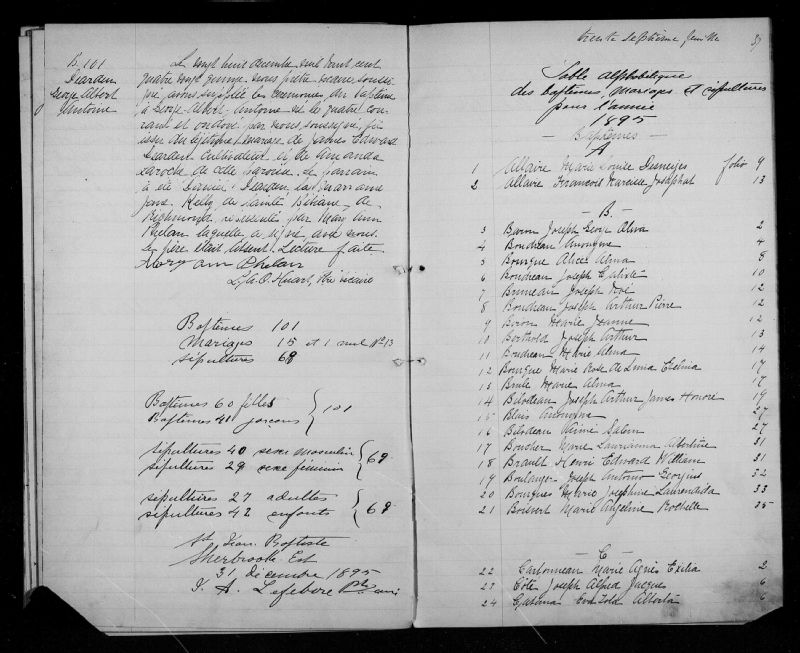 B. 101
Dearden
George Albert
Antoine
Le vingt huit decembre mil huit cent
quatre vingt quinze nous prêtre vicaire soussi
gné, avons suppléé les ceremonies du baptême
à George Albert Antoine né le quatre cou
rant et ondoyé par nous soussigné, fils
issu du légitime mariage de James Edward
Dearden cultivateur et de Amanda
Laroche de cette paroisse. Le parrain
a été Daniel Dearden, la marraine
Jane Kelly de Sainte Bibiane de
Richmond représentée par Mary Ann
Phelan laquelle a signé avec nous.
Le père était absent. Lecture faite.
Mary Ann Phelan
L. A. O. Huart, Ptre vicaire
Baptemes 101
Mariages 15 et 1 nul No 13
Sépultures 69
Baptemes 60 filles
Baptemes 41 garcons } 101
Sépultures 40 sexe masculin
Sépultures 29 sexe féminin } 69
Sépultures 27 adultes
Sépultures 42 enfants } 69
St Jean Baptiste
Sherbrooke Est
31 décembre 1895
J. A. Lefebvre Ptre curé
trente septième feuille 37
Table alphabétique
des baptemes, mariages et sépultures
pour l'année
1895
Baptêmes
A
1 Allaire Marie Louise Desneiges folio 9
2 Allaire Francois Narcisse Josaphat 13
B.
3 Baron Joseph George Alma 2
4 Boudreau Anonyme 4
5 Bourque Alice Alma 8
6 Boudreau Joseph Caliste 10
7 Bruneau Joseph Noé 12
8 Boudreau Joseph Arthur Pierre 12
9 Biron Marie Jeanne 12
10 Berthold Joseph Arthur 13
11 Boudreau Marie Alma 14
12 Bourque Marie Rose de Lima Exelina 17
13 Brulé Marie Alma 17
14 Bilodeau Joseph Arthur James Honoré 19
15 Blais Anonyme 27
16 Bilodeau Aimé Salem 27
17 Boucher Marie Laurianna Albertine 31
18 Brault Henri Edward William 31
19 Boulanger Joseph Antonio Georgius 32
20 Bourques Marie Josephine Laurendida 33
21 Boisvert Marie Angeline Rochelle 35
C
22 Carbonneau Marie Agnès Exilia 2
23 Côté Joseph Alfred Jacques 6
24 Eva Zola Alberta 6